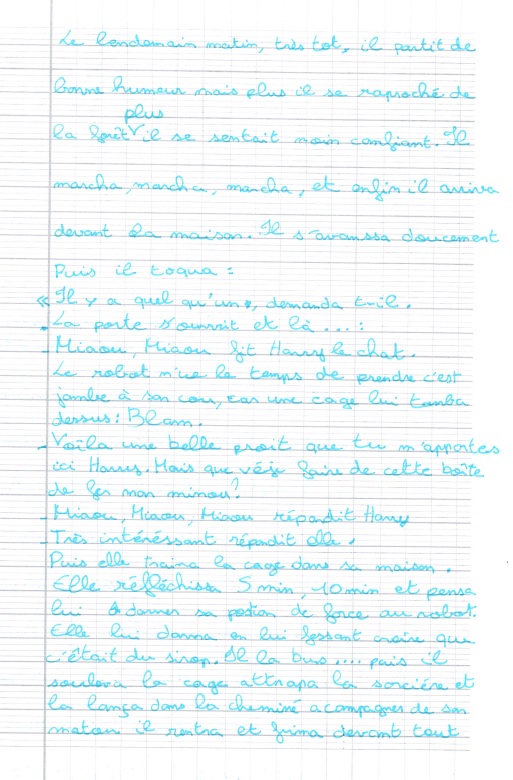 Le lendemain matin, très tot, il partit de
bonne humeur mais plus il se raproché de
plus
la forêt il se sentait moin confiant. Il
marcha, marcha, marcha, et enfin il arriva
devant la maison. Il s'avanssa doucement
Puis il toqua :
« Il y a quel qu'un, demanda t-il.
- La porte s'ouvrit et là ... :
- Miaou, Miaou fit Harry le chat.
Le robot n'ue le temps de prendre c'est
jambe à son cou, car une cage lui tomba
dessus : Blam.
- Voila une belle proit que tu m'apportes
ici Harry. Mais que véje faire de cette boîte
de fer mon minou ?
- Miaou, Miaou, Miaou répondit Harry
- Très intéréssant répondit elle.
Puis elle traina la cage dans sa maison.
Elle réfléchissa 5 min, 10 min et pensa
lui donner sa potion de force au robot.
Elle lui donna en lui fessant croire que
c'était du sirop. Il la bue .... puis il
souleva la cage attrapa la sorciére et
la lança dans la cheminé acompagner de son
matou il rentra et frima devant tout